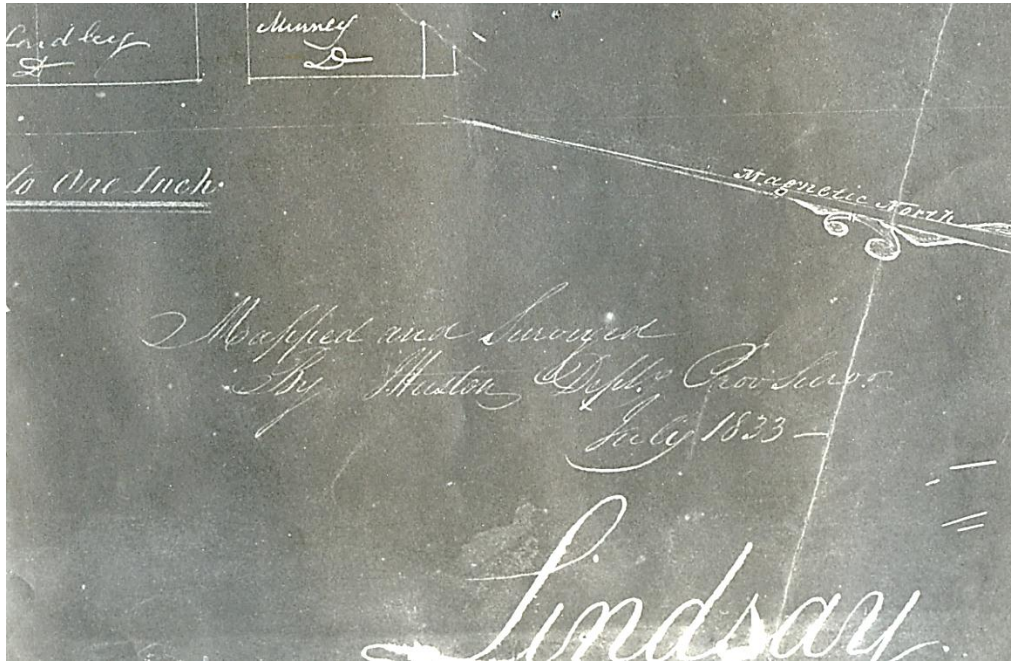 D
Murney
D
to One Inch.
Magnetic North
Mapped and Surveyed
By JHuston Depty Prov Survr.
July 1833 —
Lindsay.